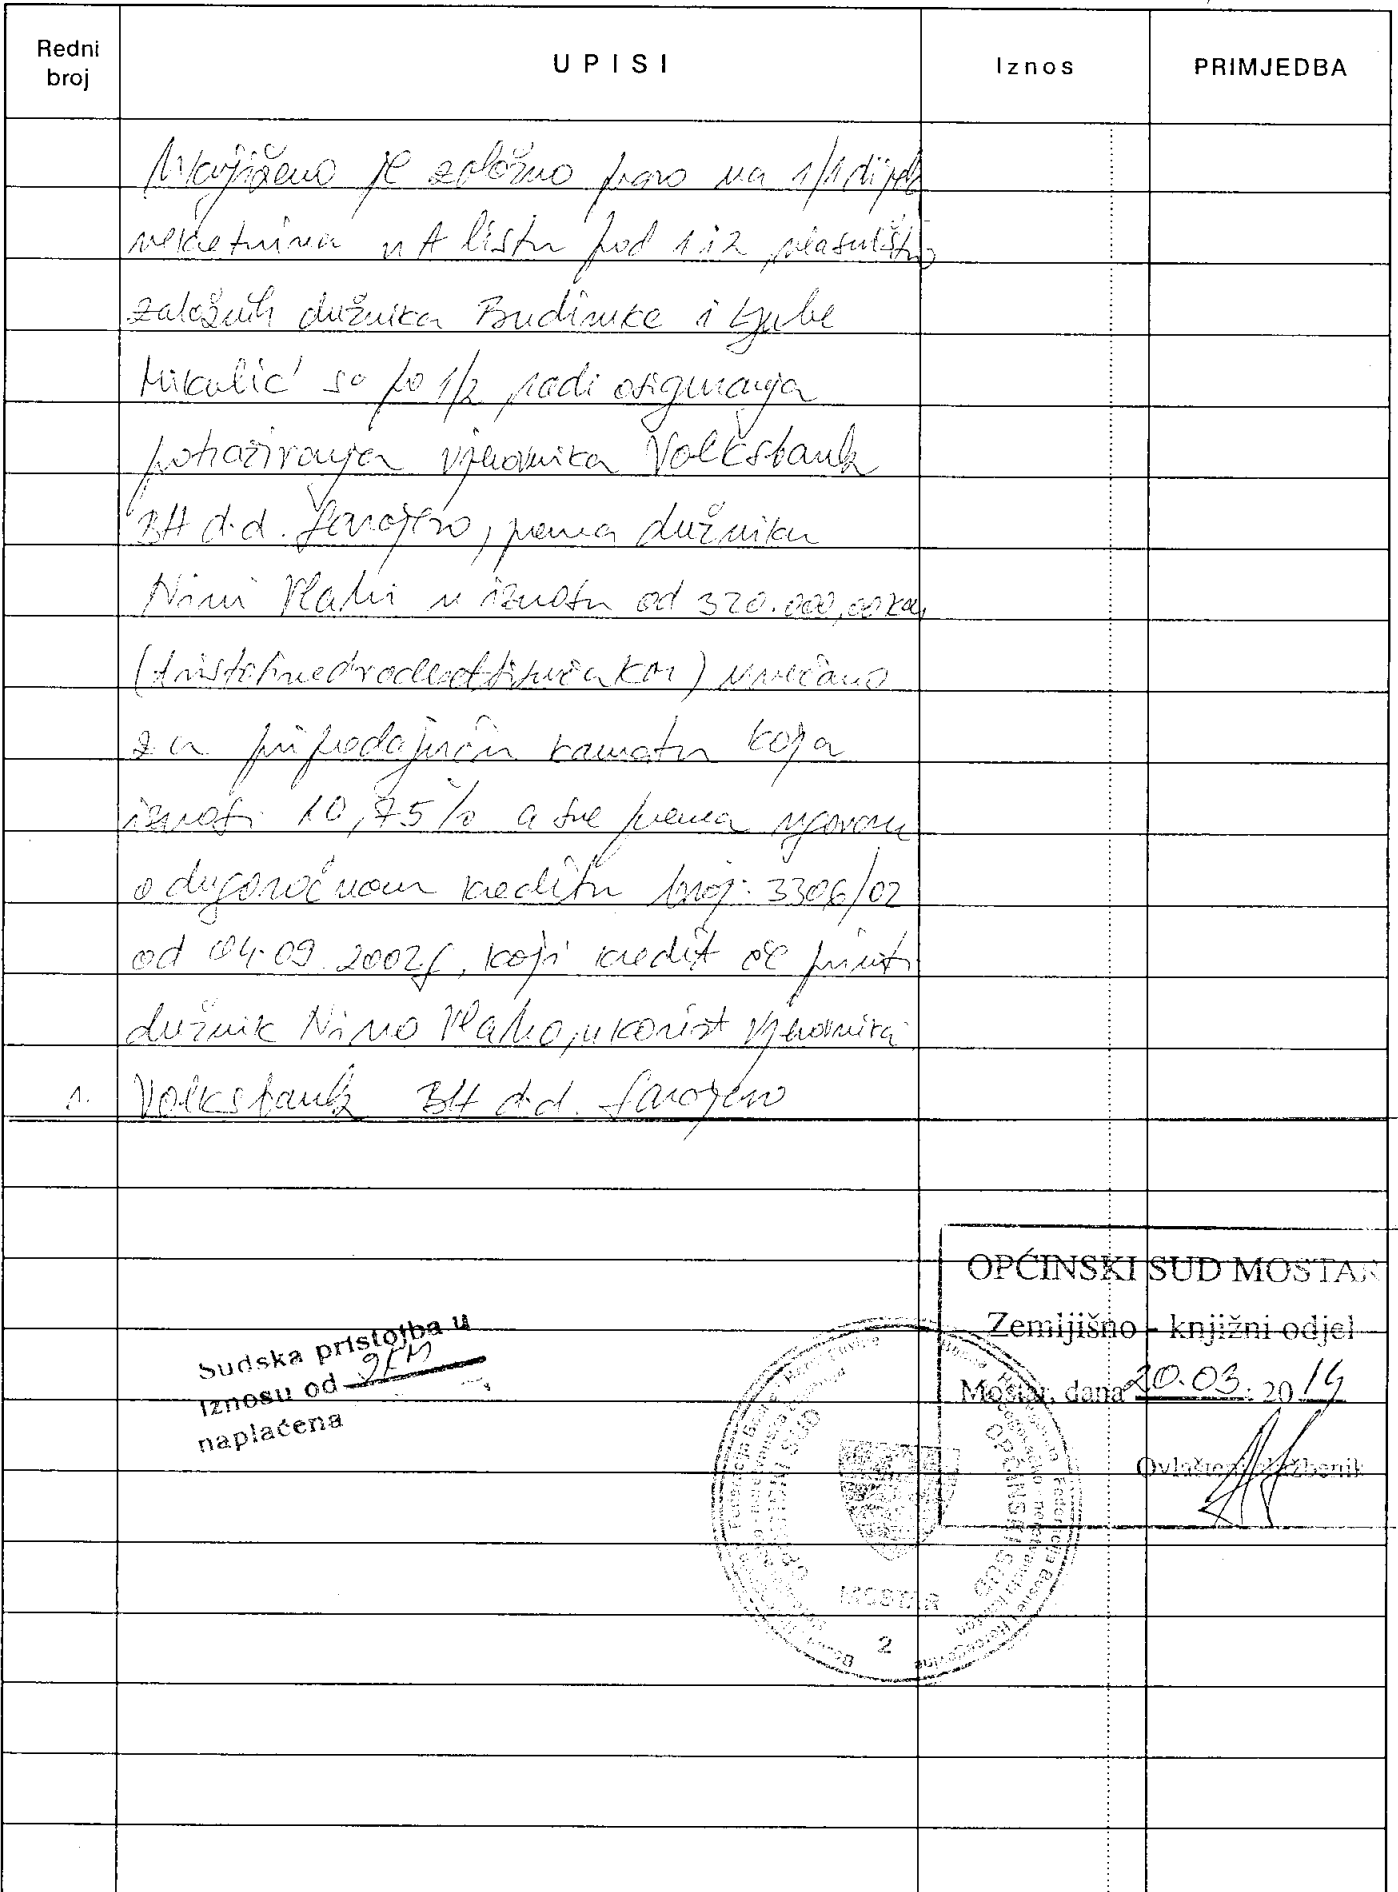 Redni
broj
U P I S I
Iznos
PRIMJEDBA
Uknjiženo je založno pravo na 1/1 dijela
nekretnina u A listu pod 1 i 2, vlasništvo
založnih dužnika Budimke i Ljube
Mikulić sa po 1/2 radi osiguranja
potraživanja vjerovnika Volksbank
BH d.d. Sarajevo, prema dužniku
Nini Vlahi u iznosu od 320.000,00 KM
(tristotine KM) uvećano
za pripadajuću kamatu koja
iznosi 10,75% a sve prema ugovoru
o dugoročnom kreditu broj: 3306/02
od 04.09.2002 g, koji kredit će primiti
dužnik Nino Vlaho, u korist vjerovnika
1. Volksbank BH d.d. Sarajevo
OPĆINSKI SUD MOSTAR
Zemljišno - knjižni odjel
Mostar, dana 20.03. 2014
Ovlašteni službenik
Sudska pristojba u
iznosu od 9KM
naplaćena
OPĆINSKI SUD
MOSTAR
2